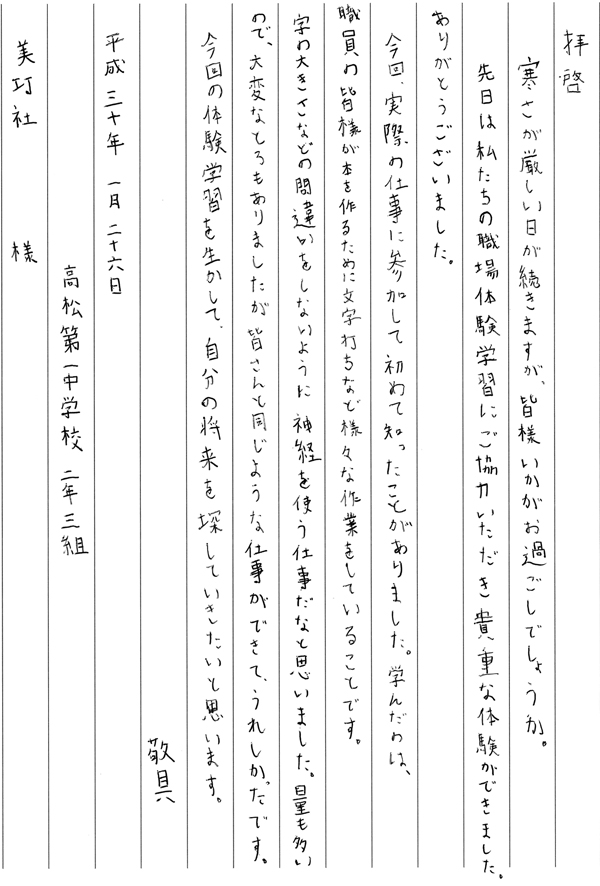 拝啓
寒さが厳しい日が続きますが、皆様いかがお過ごしでしょうか。
先日は私たちの職場体験学習にご協力いただき貴重な体験ができました。
ありがとうございました。
今回、実際の仕事に参加して初めて知ったことがありました。学んだのは、
職員の皆様が本を作るために文字打ちなど様々な作業をしていることです。
字の大きさなどの間違いをしないように神経を使う仕事だなと思いました。量も多い
ので、大変なところもありましたが皆さんと同じような仕事ができて、うれしかったです。
今回の体験学習を生かして、自分の将来を探していきたいと思います。
敬具
平成三十年 一月二十六日
高松第一中学校 二年三組
美巧社 様